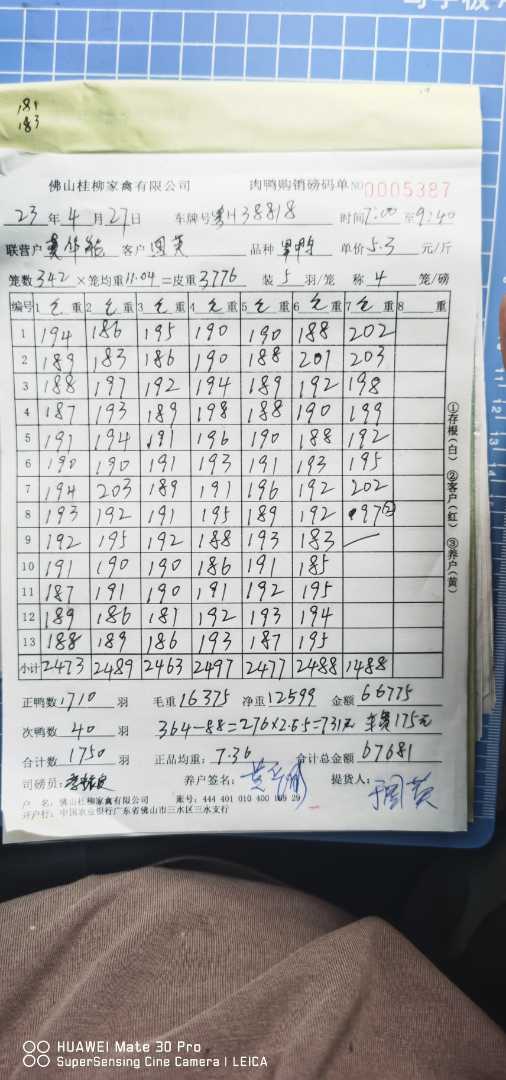 181
183
佛山桂柳家禽有限公司 肉鸭购销磅码单 NO 0005387
23 年 4 月 27 日 车牌号 粤H38818 时间 7:00 至 9:40
联营户 客户 周英 品种 单价 5.3 元/斤
笼数 342 ×笼均重 11.04 =皮重 3776 装 5 羽/笼 称 4 笼/磅
编号 1 毛 重 2 毛 重 3 毛 重 4 毛 重 5 毛 重 6 毛 重 7 毛 重 8 重
1 194 186 195 190 190 188 202
2 189 183 186 190 188 201 203
3 188 197 192 194 189 192 198
4 187 193 189 198 188 190 199
5 191 194 191 196 190 188 192
6 190 190 191 193 191 193 195
7 194 203 189 191 196 192 202
8 193 192 191 195 189 192 97②
9 192 195 192 188 193 183
10 191 190 190 186 191 185
11 187 191 190 191 192 195
12 189 186 181 192 193 194
13 188 189 186 193 187 195
小计 2473 2489 2463 2497 2477 2488 1488
①存根(白) ②客户(红) ③养户(黄)
正鸭数 1710 羽 毛重 16375 净重 12599 金额 66775
次鸭数 40 羽 364-88=276×2.65=731元 车费175元
合计数 1750 羽 正品均重: 7.36 合计总金额 67681
司磅员: 养户签名: 提货人:
户 名: 佛山桂柳家禽有限公司 账号: 444 401 010 400 169 29
开户行: 中国农业银行广东省佛山市三水区三水支行
HUAWEI Mate 30 Pro
SuperSensing Cine Camera | LEICA